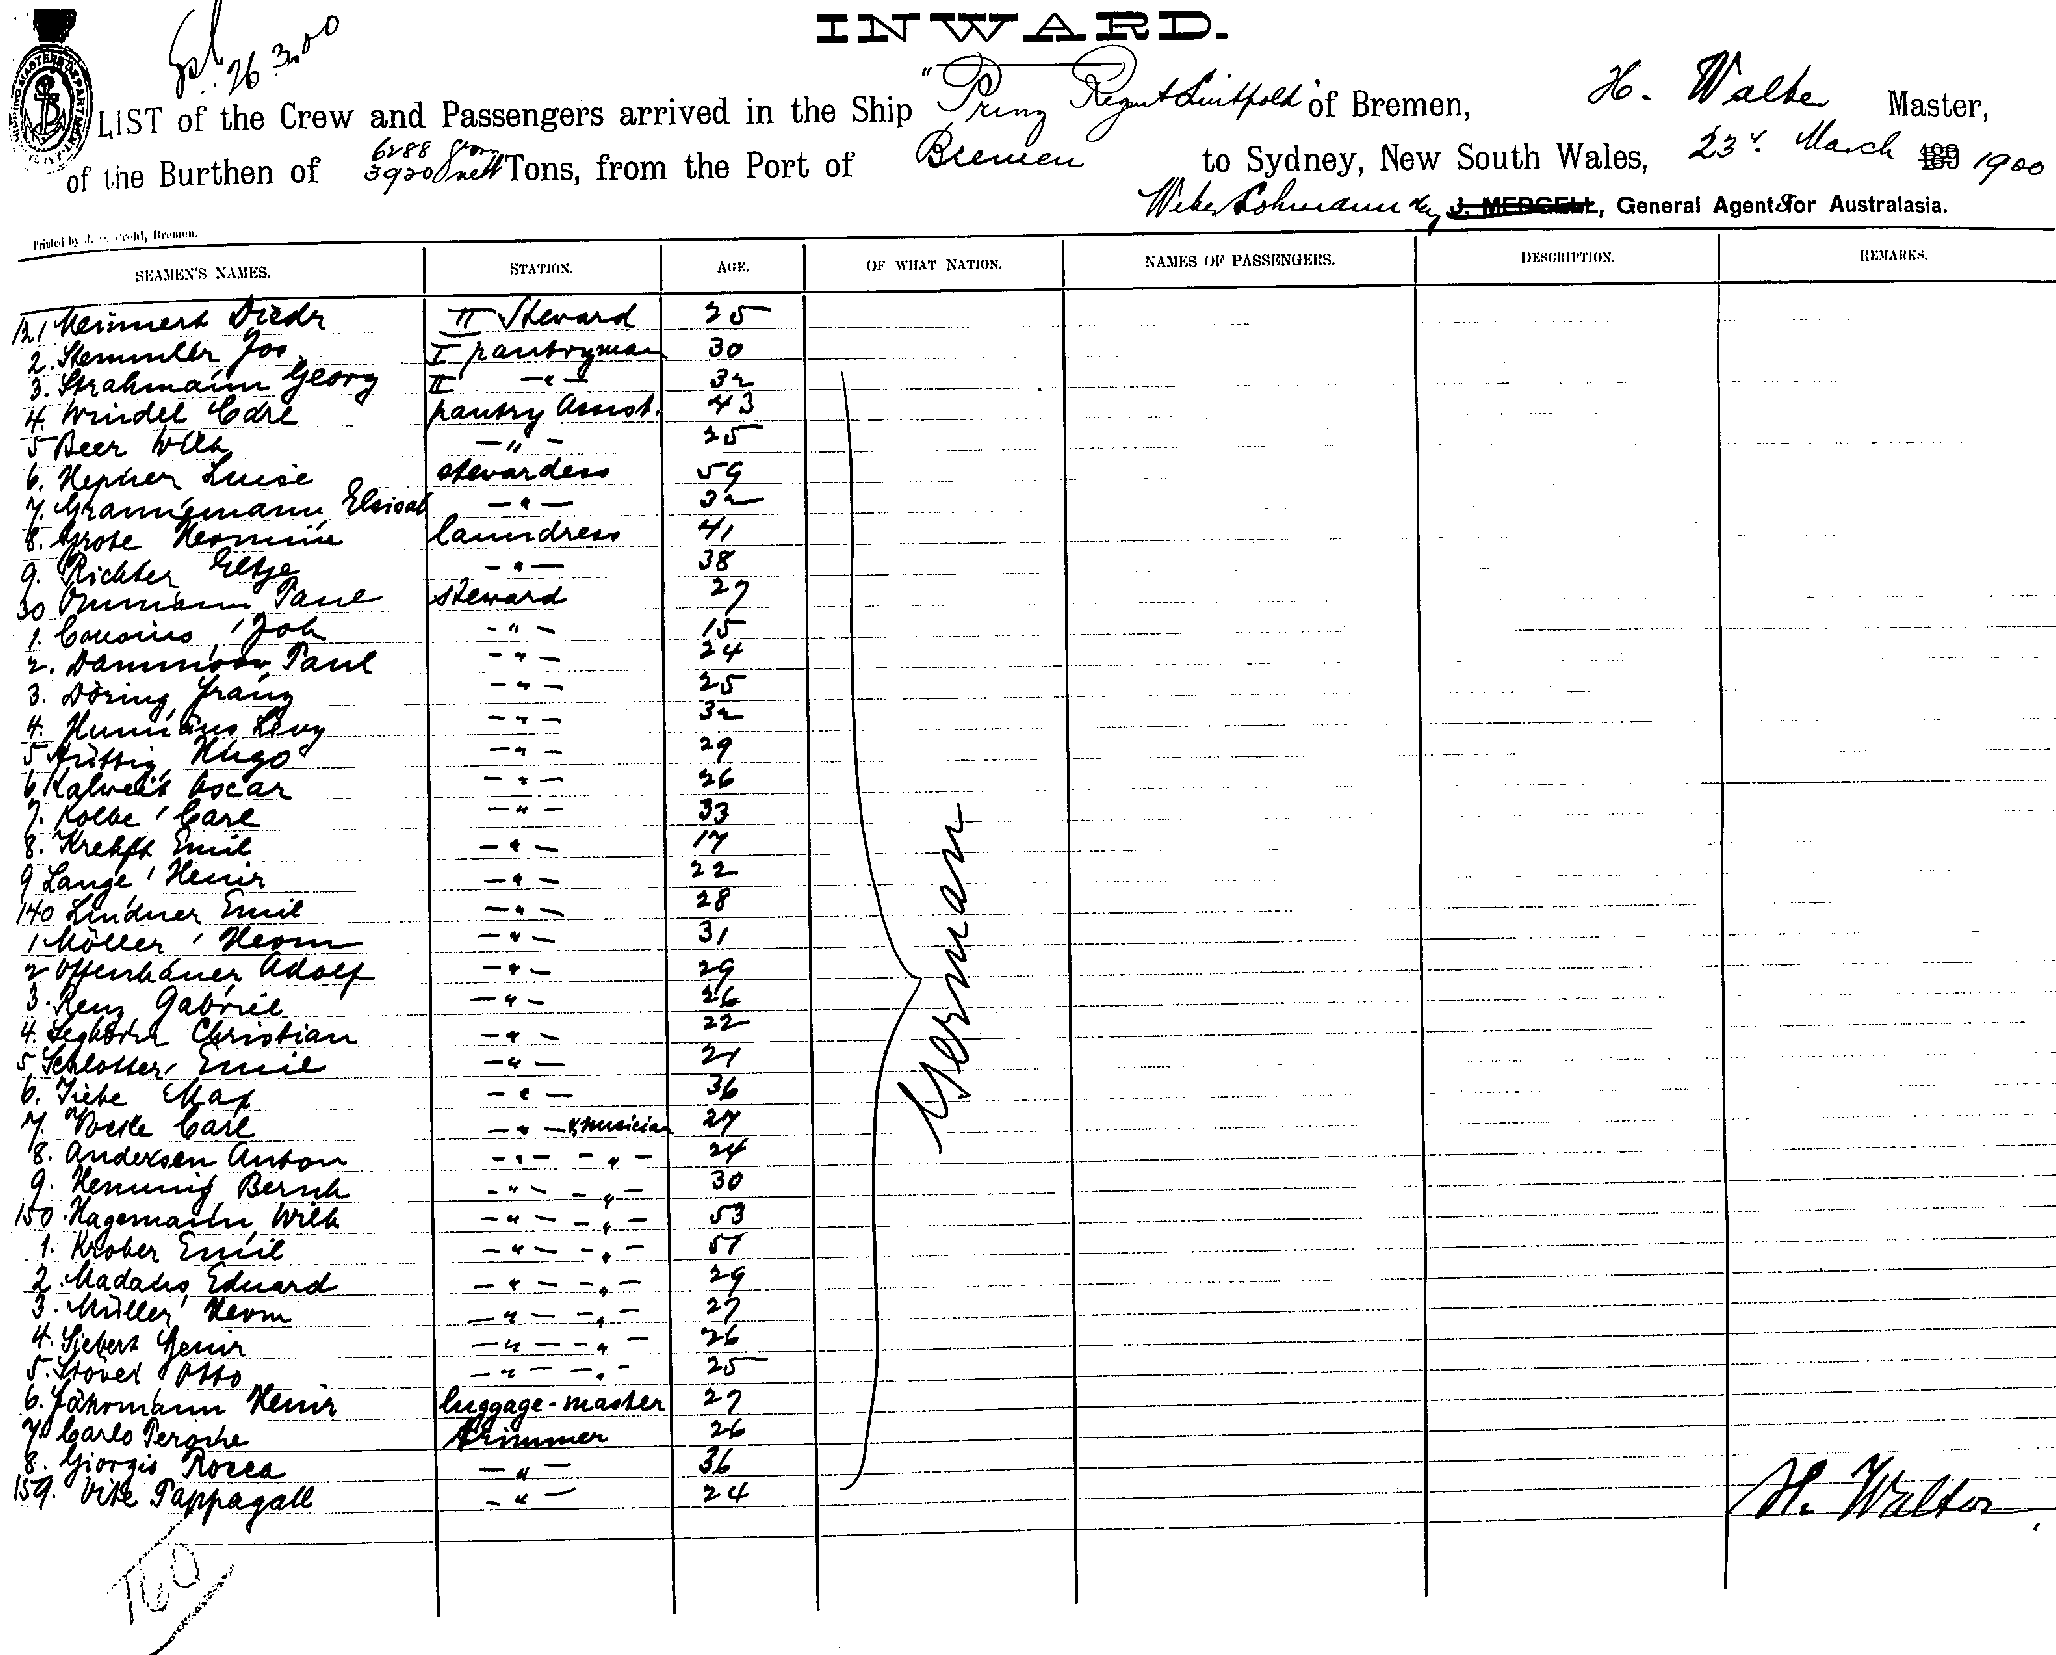 INWARD.
26.3.00
LIST of the Crew and Passengers arrived in the Ship "Prinz Regent Luitpold" of Bremen, H. Walter Master,
of the Burthen of 6288 gross 3920 nett Tons, from the Port of Bremen to Sydney, New South Wales, 23d. March 189 1900
Weber Lohmann & Co J. MERGELL, General Agents for Australasia.
Printed by Bremen.
SEAMEN'S NAMES. STATION. AGE. OF WHAT NATION. NAMES OF PASSENGERS. DESCRIPTION. REMARKS.
121 Meinnert Diedr II Steward 25
2. Stemmler Jos I pantryman 30
3. Strahmann Georg II -"- 32
4. Windel Carl pantry Assist. 43
5 Beer Wilh -"- 25
6. Hepner Luise stewardess 59
7. Grannemann, Elisab -"- 32
8. Grote Hermine laundress 41
9. Richter Eltje -"- 38
30 Paul steward 27
1. Cousins, Joh -"- 15
2. Paul -"- 24
3. Döring, Franz -"- 25
4. Levy -"- 32
5 Hüttig, Hugo -"- 29
6 Kalweit Oscar -"- 26
7. Kolbe, Carl -"- 33
8. Krefft Emil -"- 17
9 Lange, Heinr -"- 22
140 Lindner Emil -"- 28
1 Möller, Herm -"- 31
2 Offenhäuer, Adolf -"- 29
3. Renz Gabriel -"- 26
4. Seghorn Christian -"- 22
5. Schlotter, Emil -"- 21
6. Tiete Max -"- 36
7. Voske Carl -"- & musician 27
8. Andersen Anton -"- -"- 24
9. Henning Bernh -"- -"- 30
150. Hagemann, Wilh -"- -"- 53
1. Krober Emil -"- -"- 51
2. Madaus, Eduard -"- -"- 29
3. Müller, Herm -"- -"- 27
4. Siebert Heinr -"- -"- 26
5. Stöver Otto -"- -"- 25
6. Jährmann Heinr luggage-master 27
7. Carlo Peroche trimmer 26
8. Giorgis Rocca -"- 36
159. Vite Pappagall -"- 24
German
H. Walter
160